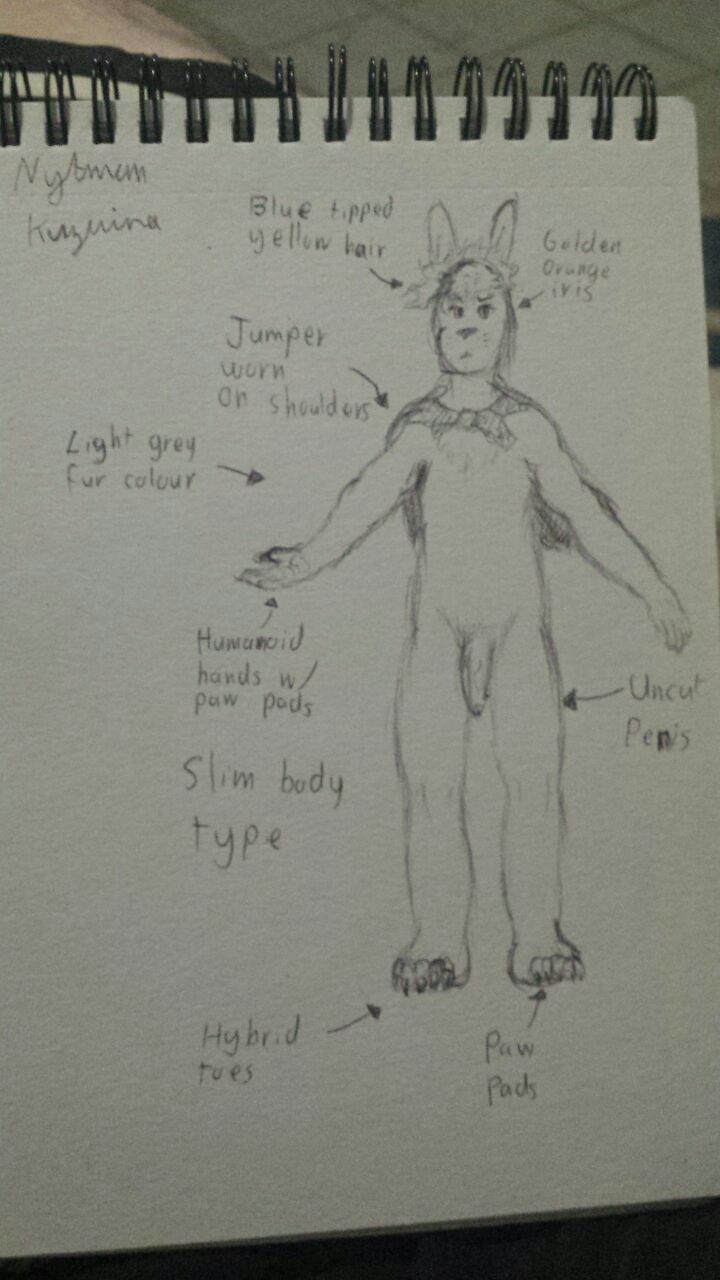 Blue tipped
yellow hair
Golden
Orange
iris
Jumper
worn
on shoulders
Light grey
fur colour
Humanoid
hands w/
paw pads
Uncut
Penis
Slim body
type
Hybrid
toes
Paw
pads